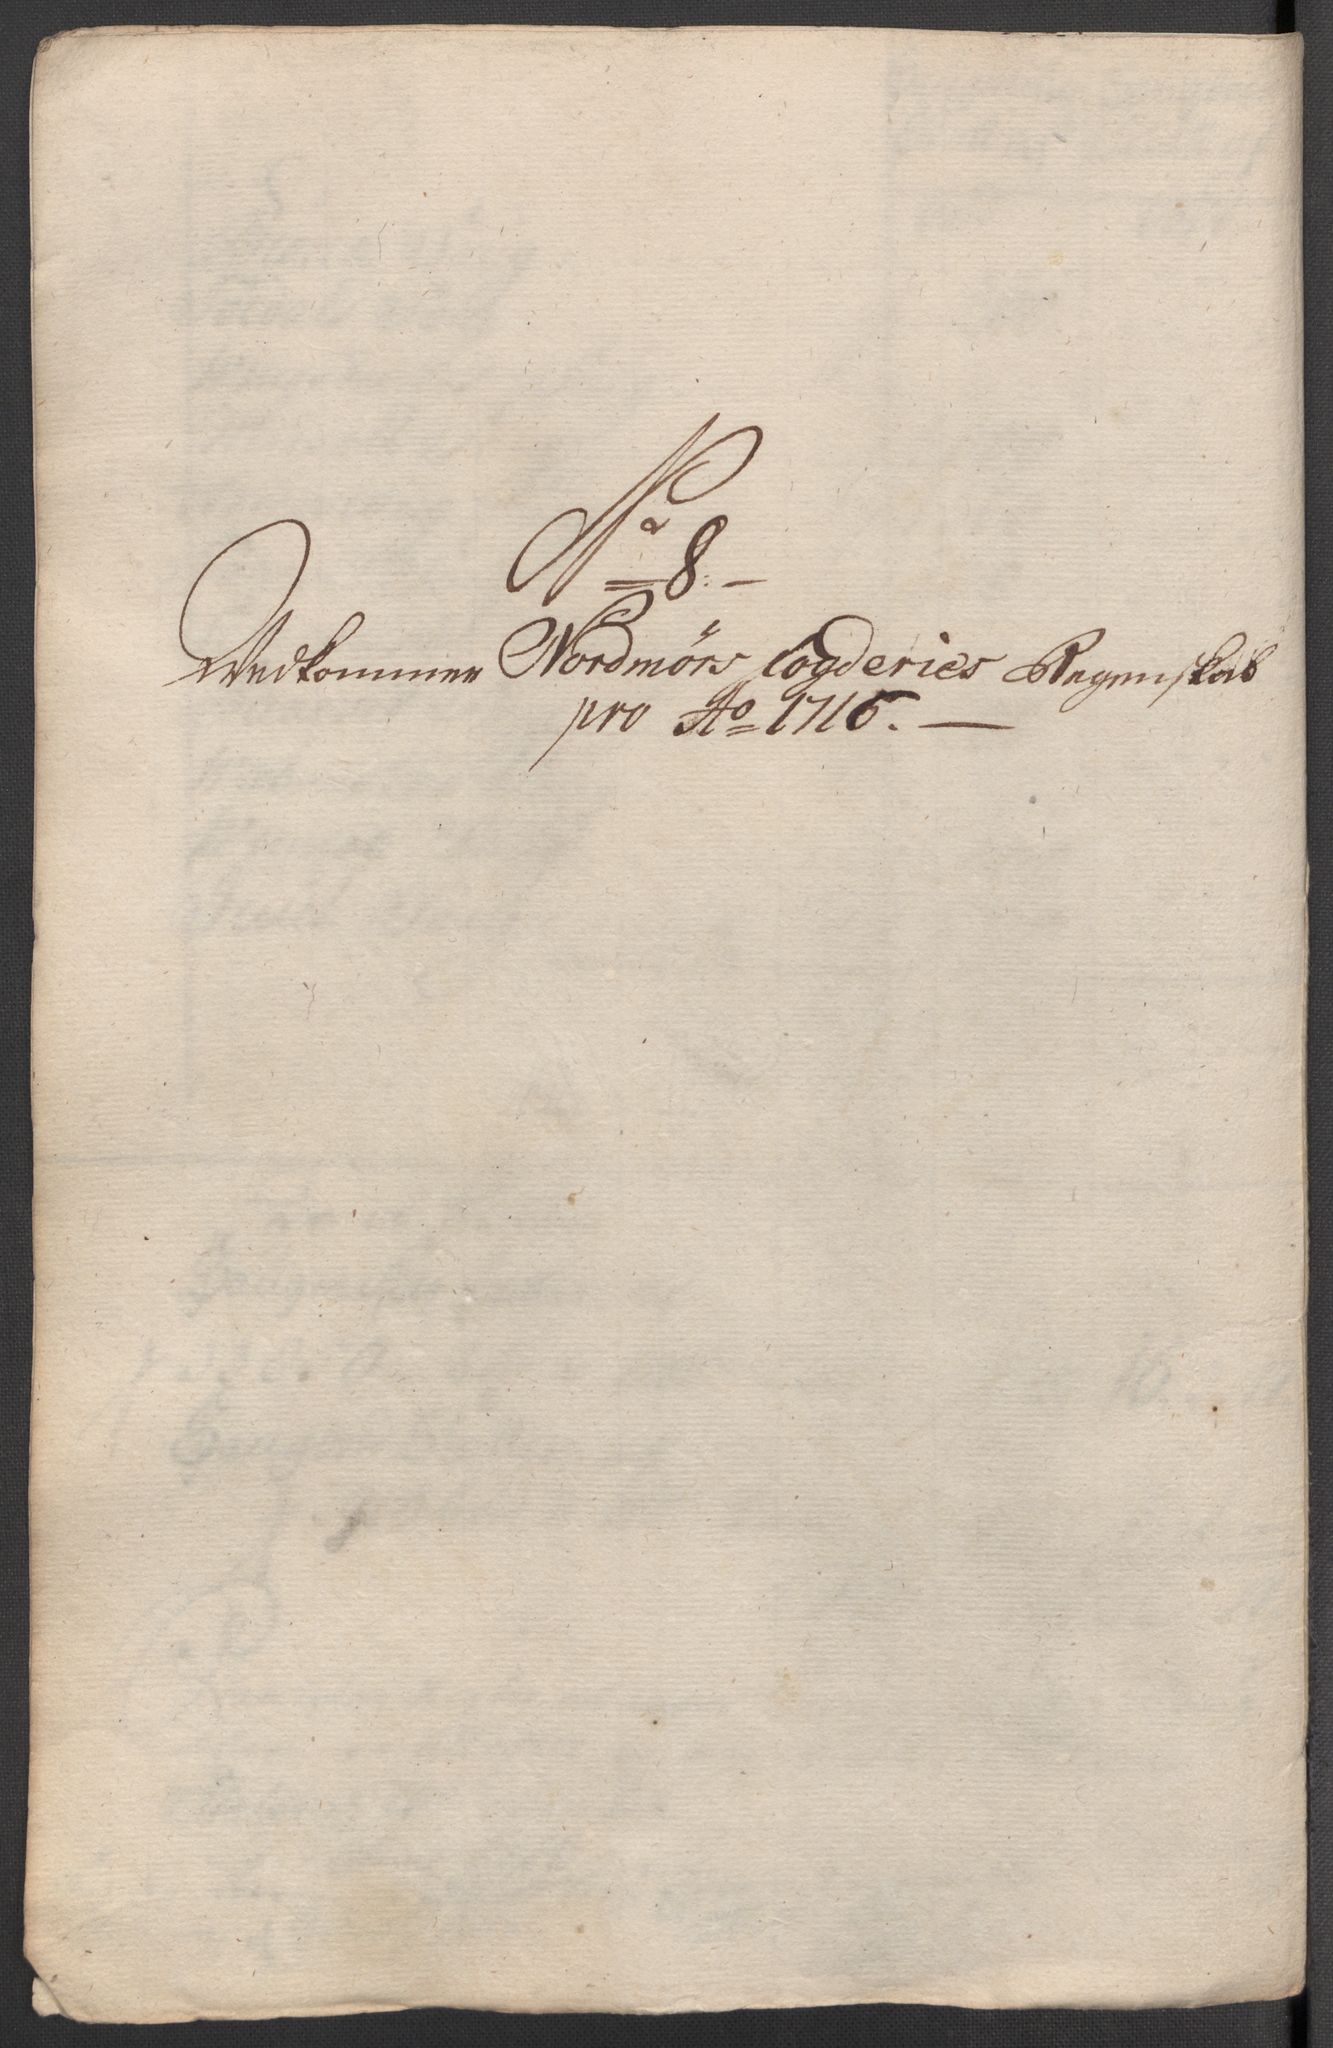 No 8.
Vedkommer Nordmörs fogderies Regenskab
pro Ao 1716.